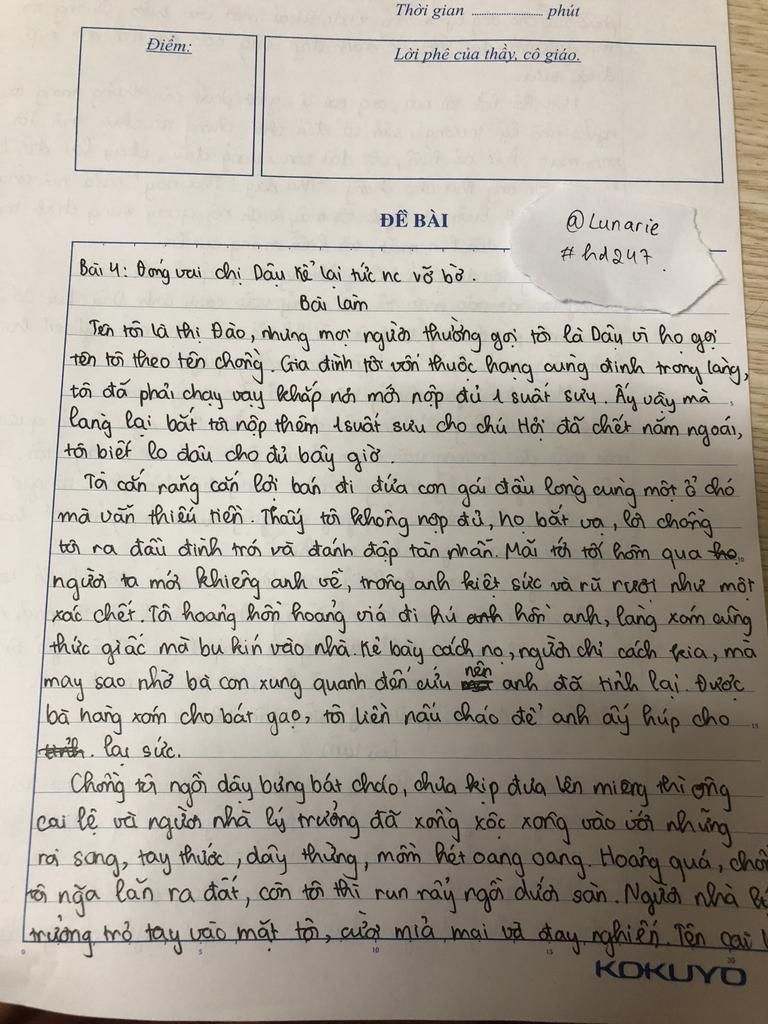 Thời gian ........................ phút
Điểm:
Lời phê của thầy, cô giáo.
ĐỀ BÀI
@Lunarie
#hd247.
Bài 4: Đóng vai chị Dậu kể lại tức nc vỡ bờ.
Bài làm
Tên tôi là thị Đào, nhưng mọi người thường gọi tôi là Dậu vì họ gọi
tên tôi theo tên chồng. Gia đình tôi vốn thuộc hạng cùng đinh trong làng,
tôi đã phải chạy vạy khắp nơi mới nộp đủ 1 suất sưu. Ấy vậy mà
làng lại bắt tôi nộp thêm 1 suất sưu cho chú Hợi đã chết năm ngoái,
tôi biết lo đâu cho đủ bây giờ.
Tôi cắn răng cắn lợi bán đi đứa con gái đầu lòng cùng một ổ chó
mà vẫn thiếu tiền. Thấy tôi không nộp đủ, họ bắt vạ, lôi chồng
tôi ra đầu đình trói và đánh đập tàn nhẫn. Mãi tới tối hôm qua họ
người ta mới khiêng anh về, trông anh kiệt sức và rũ rượi như một
xác chết. Tôi hoảng hồn hoảng viá đi hú anh hồn anh, làng xóm cũng
thức giấc mà bu kín vào nhà. Kẻ bày cách nọ, người chỉ cách kia, mà
may sao nhờ bà con xung quanh đến cứu nên anh đã tỉnh lại. Được
bà hàng xóm cho bát gạo, tôi liền nấu cháo để anh ấy húp cho
tỉnh. lại sức.
Chồng tôi ngồi dậy bưng bát cháo, chưa kịp đưa lên miệng thì ông
cai lệ và người nhà lý trưởng đã xồng xộc xông vào với những
roi song, tay thước, dây thừng, mồm hét oang oang. Hoảng quá, chồ
tôi ngã lăn ra đất, còn tôi thì run rẩy ngồi dưới sàn. Người nhà
trưởng trỏ tay vào mặt tôi, cười mỉa mai và đay nghiến. Tên cai l
KOKUYO